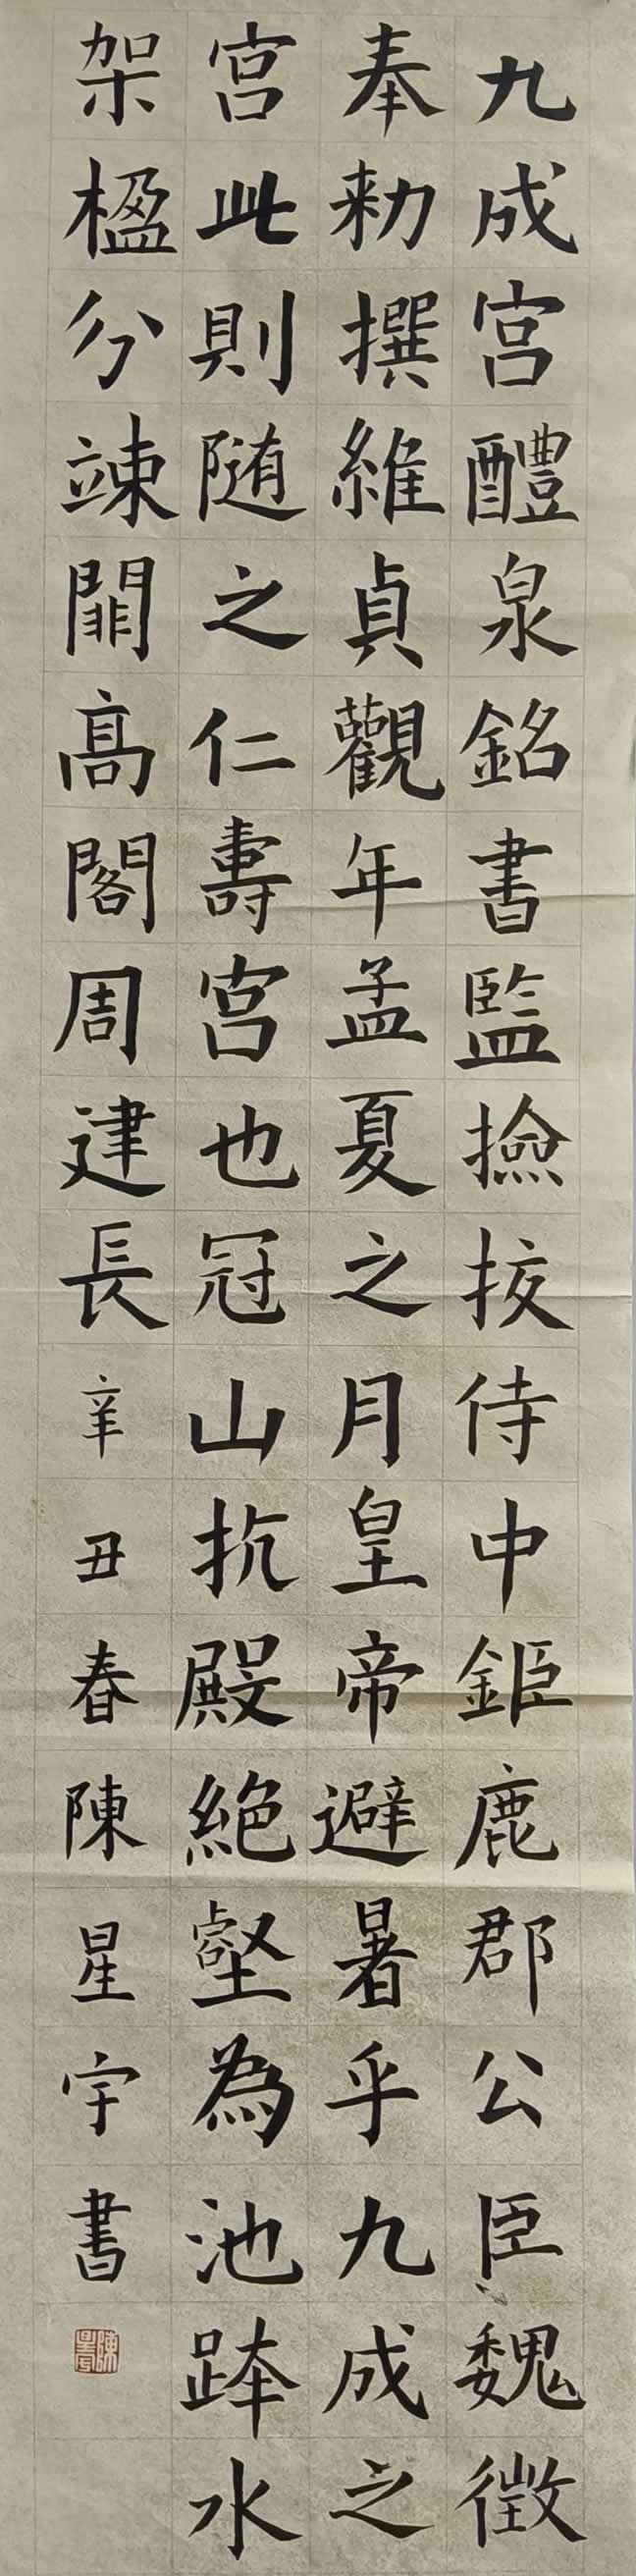 九成宫醴泉銘書監撿挍侍中鉅鹿郡公臣魏徵
奉勑撰維貞觀年孟夏之月皇帝避暑乎九成之
宫此則随之仁壽宫也冠山抗殿絶壑為池跨水
架楹分竦闈高閣周建長辛丑春陳星宇書
陳星宇